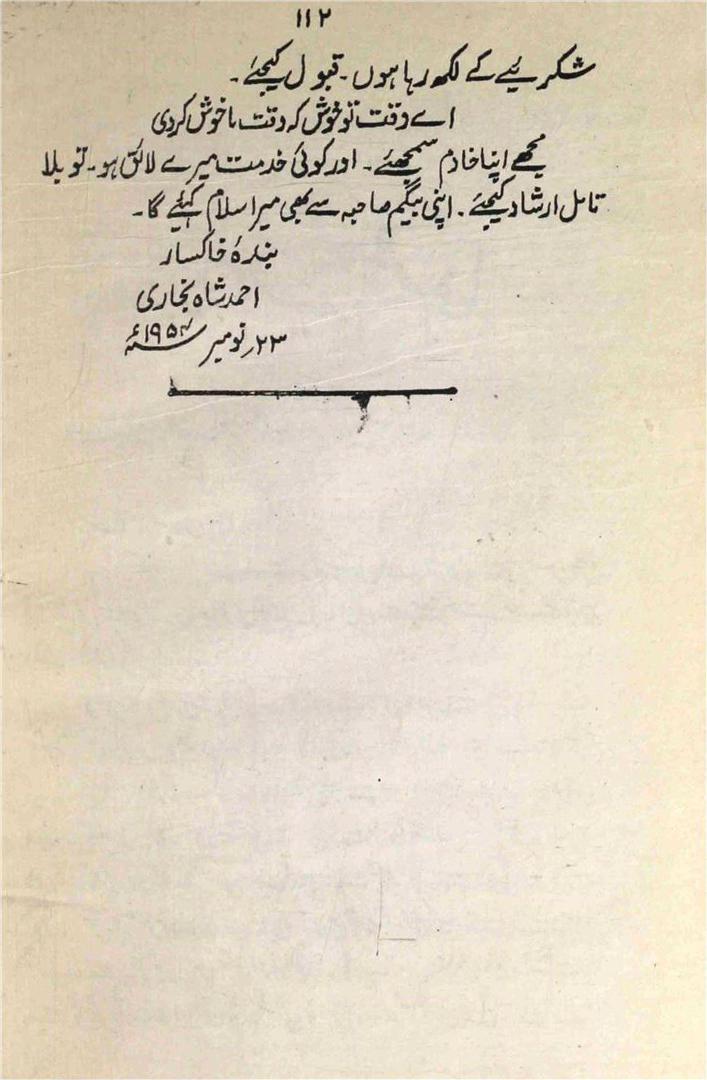 ۱۱۲
شکرئیے کے لکھ رہا ہوں۔ قبول کیجئے۔
اے وقت تو خوش کہ وقت ما خوش کردی
مجھے اپنا خادم سمجھئے۔ اور کوئی خدمت میرے لائق ہو۔ تو بلا
تامل ارشاد کیجئے۔ اپنی بیگم صاحبہ سے بھی میرا سلام کہئیے گا۔
بندۂ خاکسار
احمد شاہ بخاری
۲۳؍ نومبر ۱۹۵۴ء